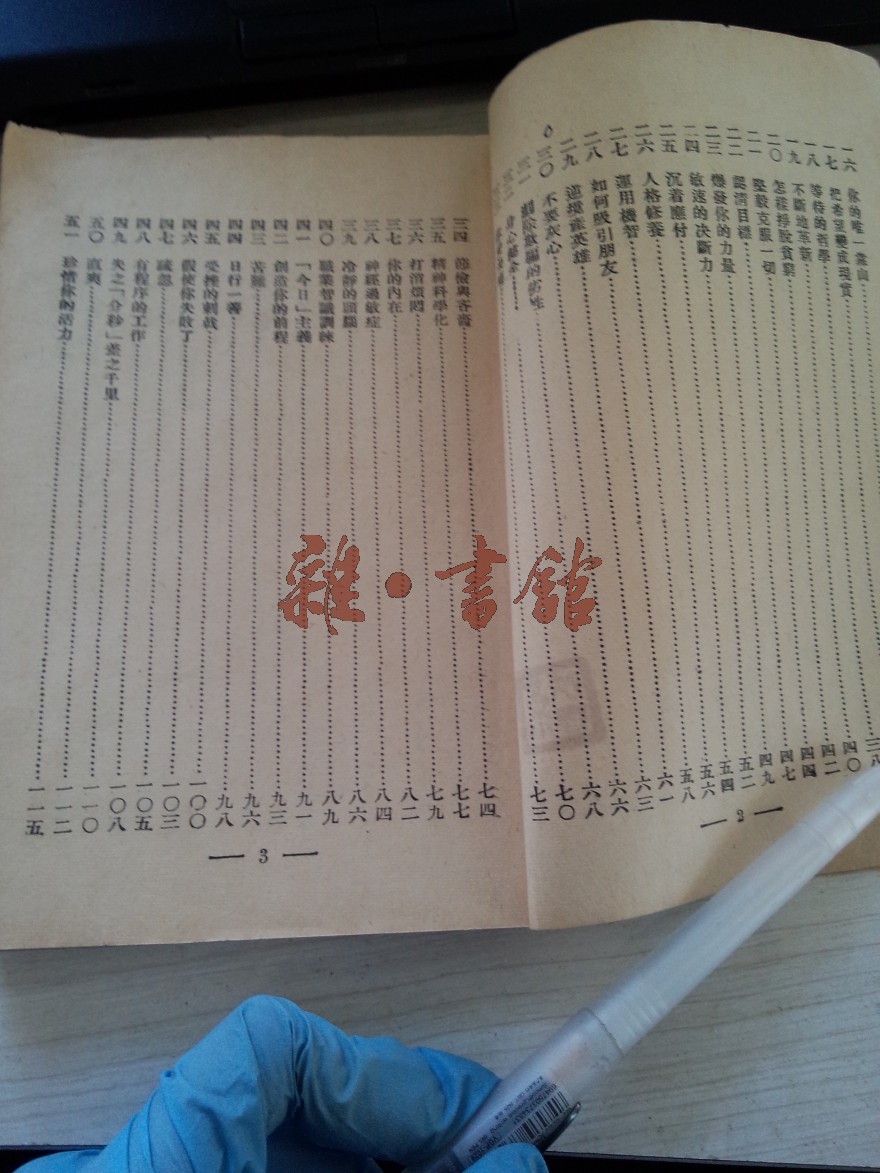 一六 你的唯一靠山……三八
一七 把希望變成現實……四〇
一八 等待的哲學……四二
一九 不斷地革新……四四
二〇 怎樣掙脫貧窮……四七
二一 堅毅克服一切……四九
二二 認清目標……五二
二三 爆發你的力量……五四
二四 敏速的決斷力……五六
二五 沉着應付……五八
二六 人格修養……六一
二七 運用機智……六三
二八 如何吸引朋友……六六
二九 逆境產英雄……六八
三〇 不要灰心……七〇
三一 剷除欺騙的劣性……七三
— 2 —
三四 節儉與吝嗇……七四
三五 精神科學化……七七
三六 打消煩悶……七九
三七 你的內在……八二
三八 神經過敏症……八四
三九 冷靜的頭腦……八六
四〇 職業智識訓練……八九
四一 「今日」主義……九一
四二 創造你的前程……九三
四三 苦難……九六
四四 日行一善……九八
四五 受挫的刺戟……一〇〇
四六 假使你失敗了……一〇三
四七 疏忽……一〇五
四八 有程序的工作……一〇八
四九 失之「分秒」差之千里……一一〇
五〇 直爽……一一二
五一 珍惜你的活力……一一五
— 3 —
雜·書館